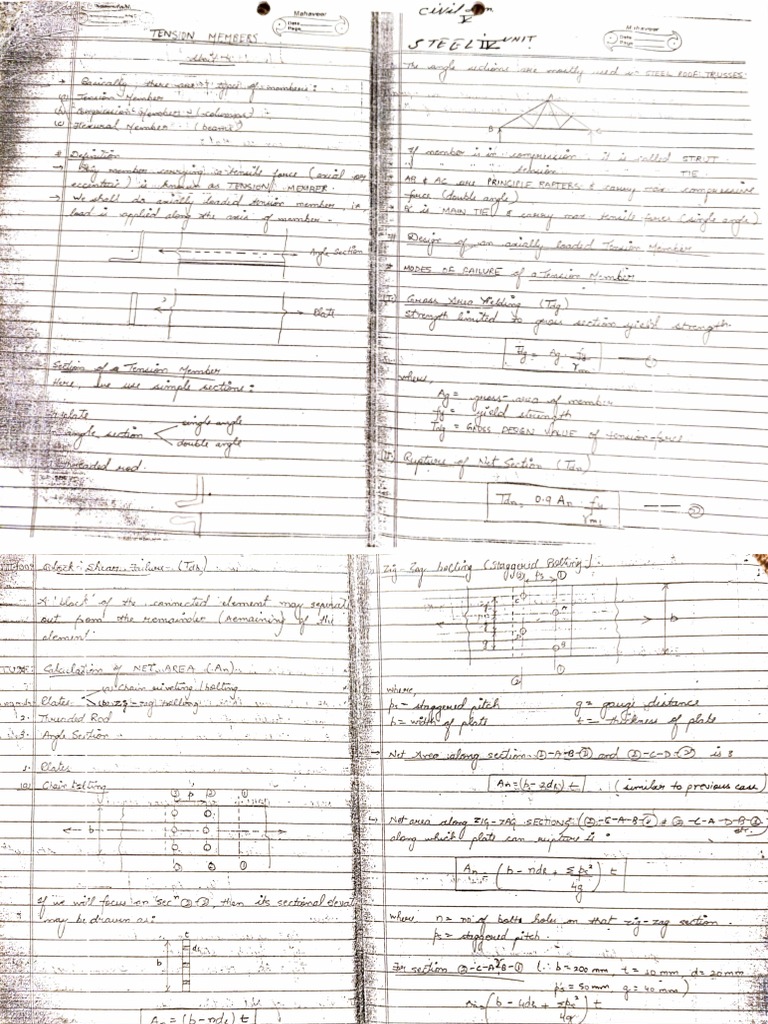 Mahaveer
Date
Page
TENSION MEMBERS
Unit-4
→ Basically there are types of members:
Tension Member
(b) Compression Members (columns)
(c) Flexural Member (beams)
* Definition
→ Any member carrying a tensile force (axial or
eccentric) is known as TENSION MEMBER.
→ We shall do axially loaded tension member, i.e.
load is applied along the axis of member.
Angle Section
Plate
Section of a Tension Member
Here, we use simple sections:
plate
angle section
single angle
double angle
threaded rod.
civil-
V
STEEL IV UNIT
Mahaveer
Date
Page
The angle sections are mostly used in STEEL ROOF TRUSSES.
B
→ If member is in compression it is called STRUT
" " " tension " TIE
→ AB & AC are PRINCIPLE RAFTERS & carry max compressive
force (double angle)
→ is MAIN TIE & carry max tensile force (single angle)
Design of an axially loaded Tension Member
* MODES OF FAILURE of a Tension Member
(I) Gross Area Yielding (Tdg)
Strength limited to gross section yield strength
Tdg = Ag fy / γmo
where,
Ag = gross area of member
fy = yield strength
Tdg = GROSS DESIGN VALUE of tension force
(II) Rupture of Net Section (Tdn)
Tdn = 0.9 An fu / γm1 — ②
Block Shear Failure (Tdb)
A 'block' of the connected element may separate
out from the remainder (remaining) of the
element.
Calculation of NET AREA (An)
Plates
(a) Chain riveting/bolting
(b) Zig-zag bolting
2. Threaded Rod
3. Angle Section
1. Plates
(a) Chain bolting
① ② ①
p
b
① ② ①
If we will focus on secⁿ ②-②, then its sectional
may be drawn as:
b
dh
t
An = (b-ndh) t
Zig Zag bolting (Staggered Bolting):
② ps ①
g
b
②
①
where,
ps = staggered pitch g = gauge distance
b = width of plate t = thickness of plate
→ Net Area along section ①-A-B-① and ②-C-D-② is:
An = (b-2dh) t (similar to previous case)
→ Net area along ZIG-ZAG SECTIONS
along which plate can rupture is
An = (b - ndh + Σps²/4g) t
where, n = no of bolts holes on that zig-zag section.
ps = staggered pitch.
For section (∵ b=200 mm t=10mm d=20mm
ps=50mm g=40mm)
An = (b - 4dh + Σps²/4g) t